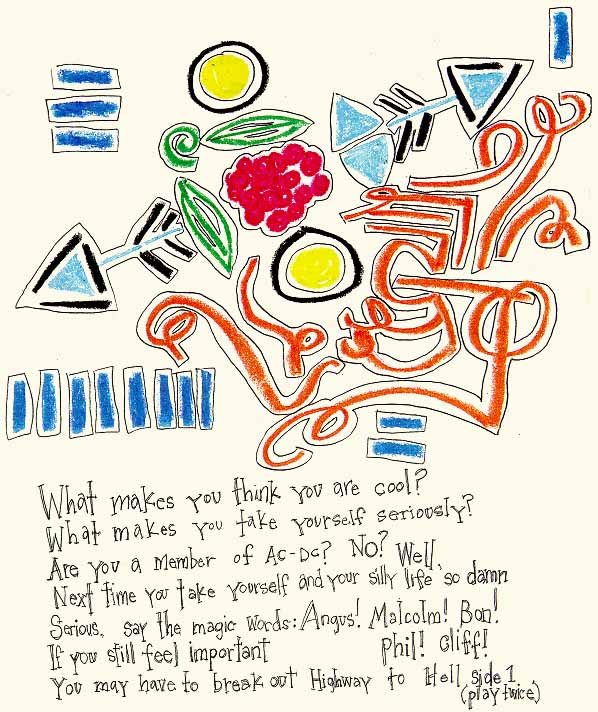 What makes you think you are cool?
What makes you take yourself seriously?
Are you a member of AC-DC? NO? Well,
Next time you take yourself and your silly life so damn
Serious, say the magic words: Angus! Malcolm! Bon!
If you still feel important Phil! Cliff!
You may have to break out Highway to Hell side 1.
(play twice)